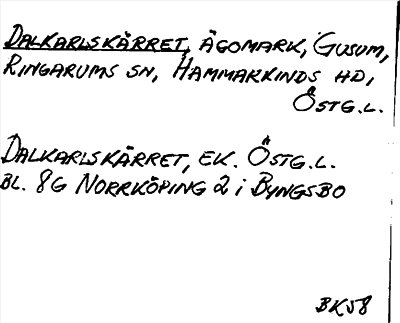 DALKARLSKÄRRET, ÄGOMARK, GUSUM,
RINGARUMS SN, HAMMARKINDS HD,
ÖSTG.L.
DALKARLSKÄRRET, EK. ÖSTG.L.
BL. 8G NORRKÖPING 2 i BYNGSBO
BK58